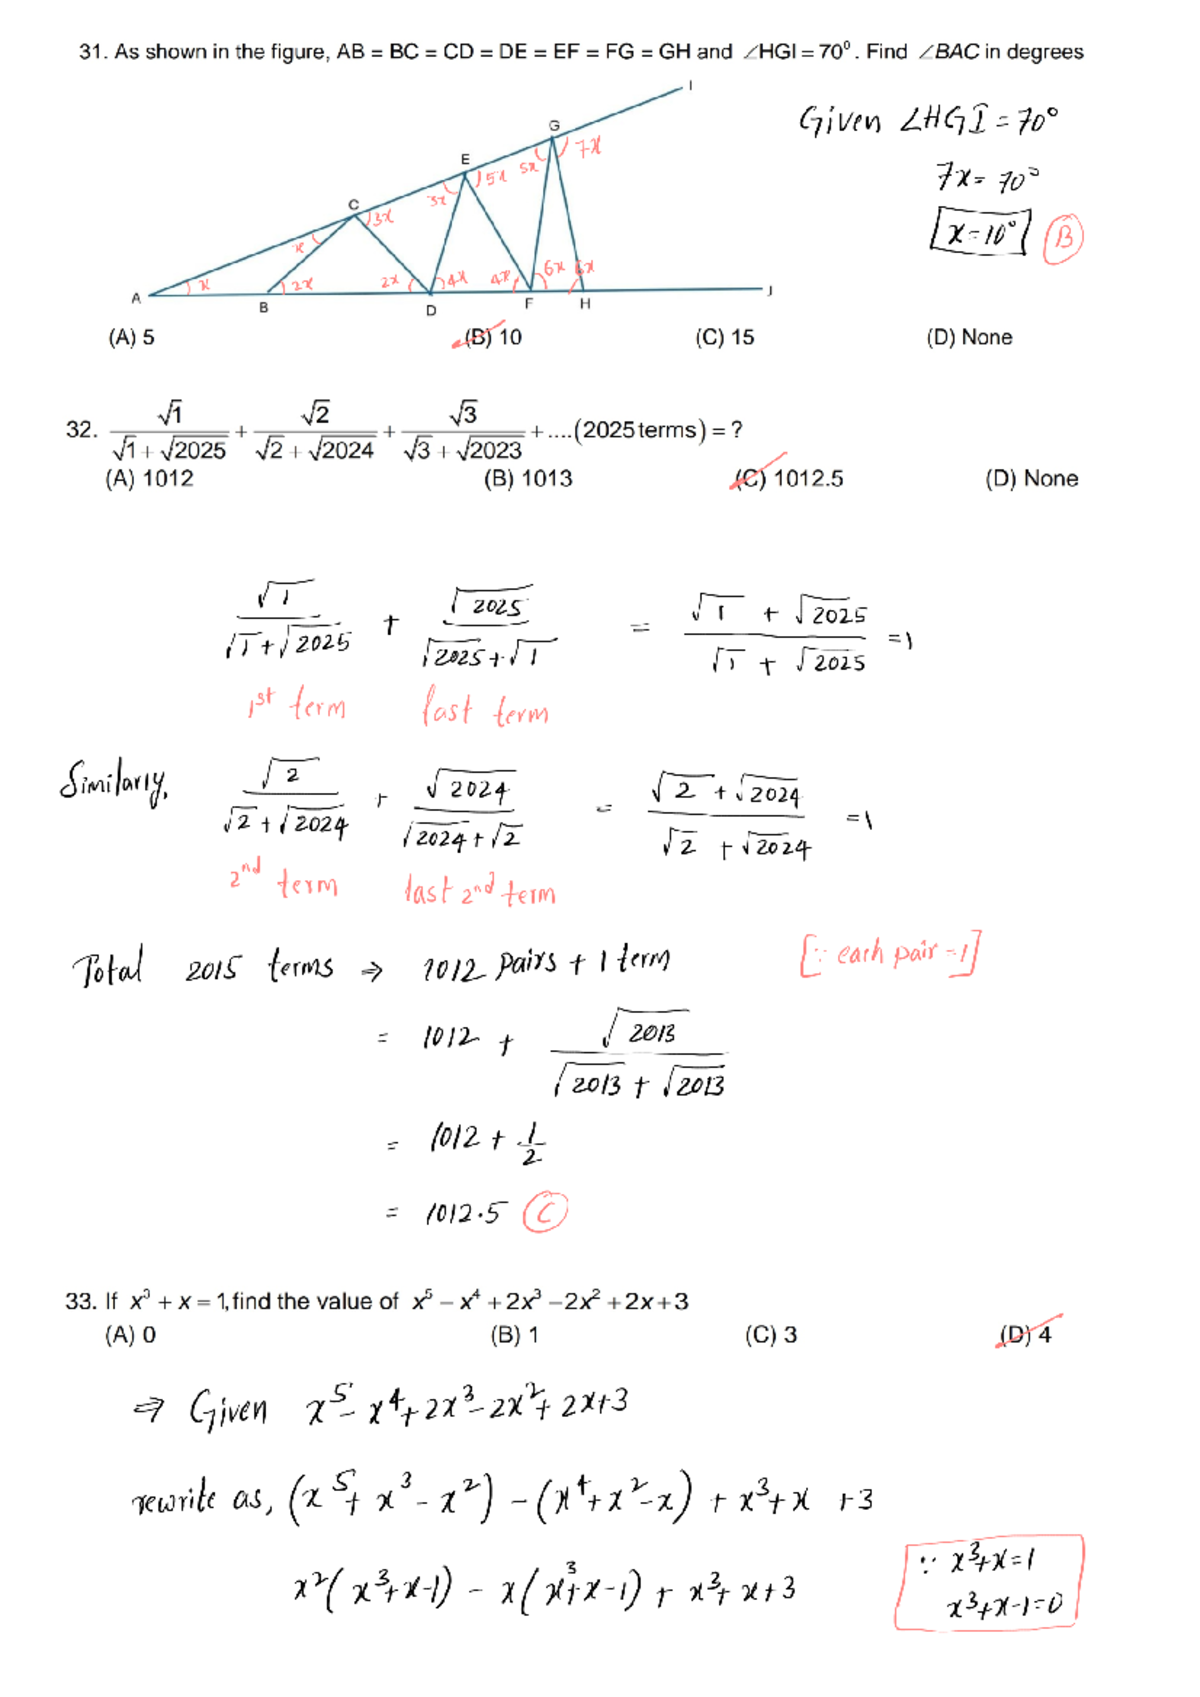 31. As shown in the figure, AB = BC = CD = DE = EF = FG = GH and ∠HGI = 70⁰. Find ∠BAC in degrees
I
G
7x
E
5x
5x
C
3x
3x
x
x
2x
2x
4x
4x
6x
6x
A
B
D
F
H
J
Given ∠HGI = 70°
7x = 70°
x = 10° (B)
(A) 5 (B) 10 (C) 15 (D) None
32. √1/(√1 + √2025) + √2/(√2 + √2024) + √3/(√3 + √2023) + ....(2025 terms) = ?
(A) 1012 (B) 1013 (C) 1012.5 (D) None
√1/(√1 + √2025) + √2025/(√2025 + √1) = (√1 + √2025)/(√1 + √2025) = 1
1st term last term
Similarly, √2/(√2 + √2024) + √2024/(√2024 + √2) = (√2 + √2024)/(√2 + √2024) = 1
2nd term last 2nd term
Total 2015 terms ⇒ 1012 pairs + 1 term [∵ each pair = 1]
= 1012 + √2013/(√2013 + √2013)
= 1012 + 1/2
= 1012.5 (C)
33. If x³ + x = 1, find the value of x⁵ – x⁴ + 2x³ – 2x² + 2x + 3
(A) 0 (B) 1 (C) 3 (D) 4
⇒ Given x⁵ - x⁴ + 2x³ - 2x² + 2x + 3
rewrite as, (x⁵ + x³ - x²) - (x⁴ + x² - x) + x³ + x + 3
x²(x³ + x - 1) - x(x³ + x - 1) + x³ + x + 3
∵ x³ + x = 1
x³ + x - 1 = 0